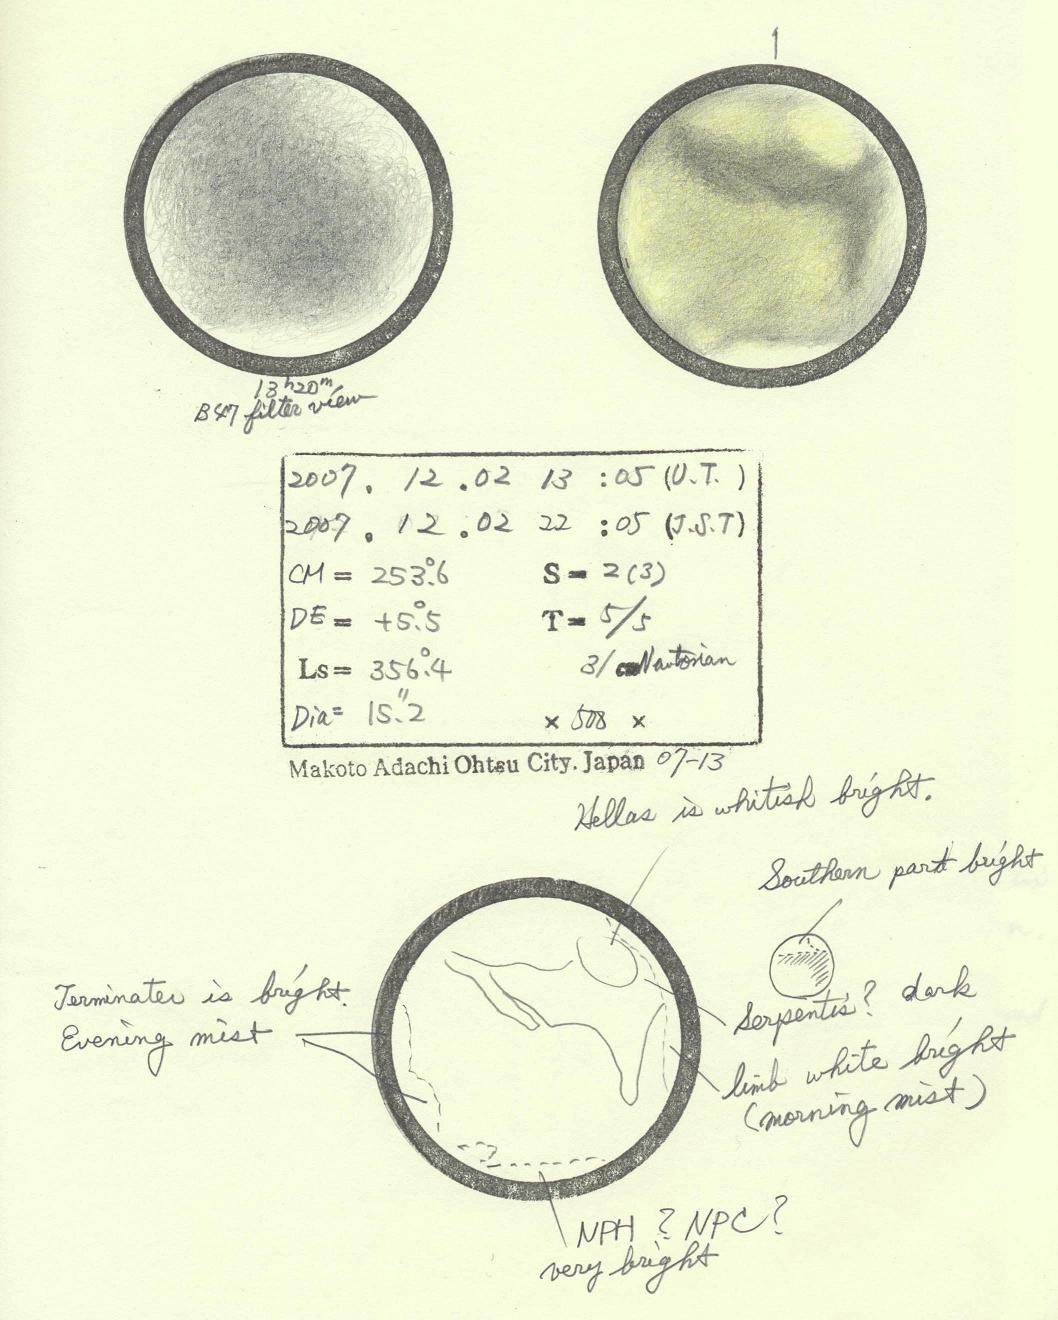 13h20m
B47 filter view
2007. 12 .02 13 :05 (U.T. )
2007. 12 .02 22 :05 (J.S.T)
CM = 253.°6 S = 2(3)
DE = +5.°5 T = 5/5
Ls = 356.°4 31 cm Newtonian
Dia = 15."2 × 508 ×
Makoto Adachi Ohtsu City. Japan 07-13
Hellas is whitish bright.
Southern part bright
Terminater is bright.
Evening mist
Serpentis? dark
limb white bright
(morning mist)
NPH ? NPC ?
very bright